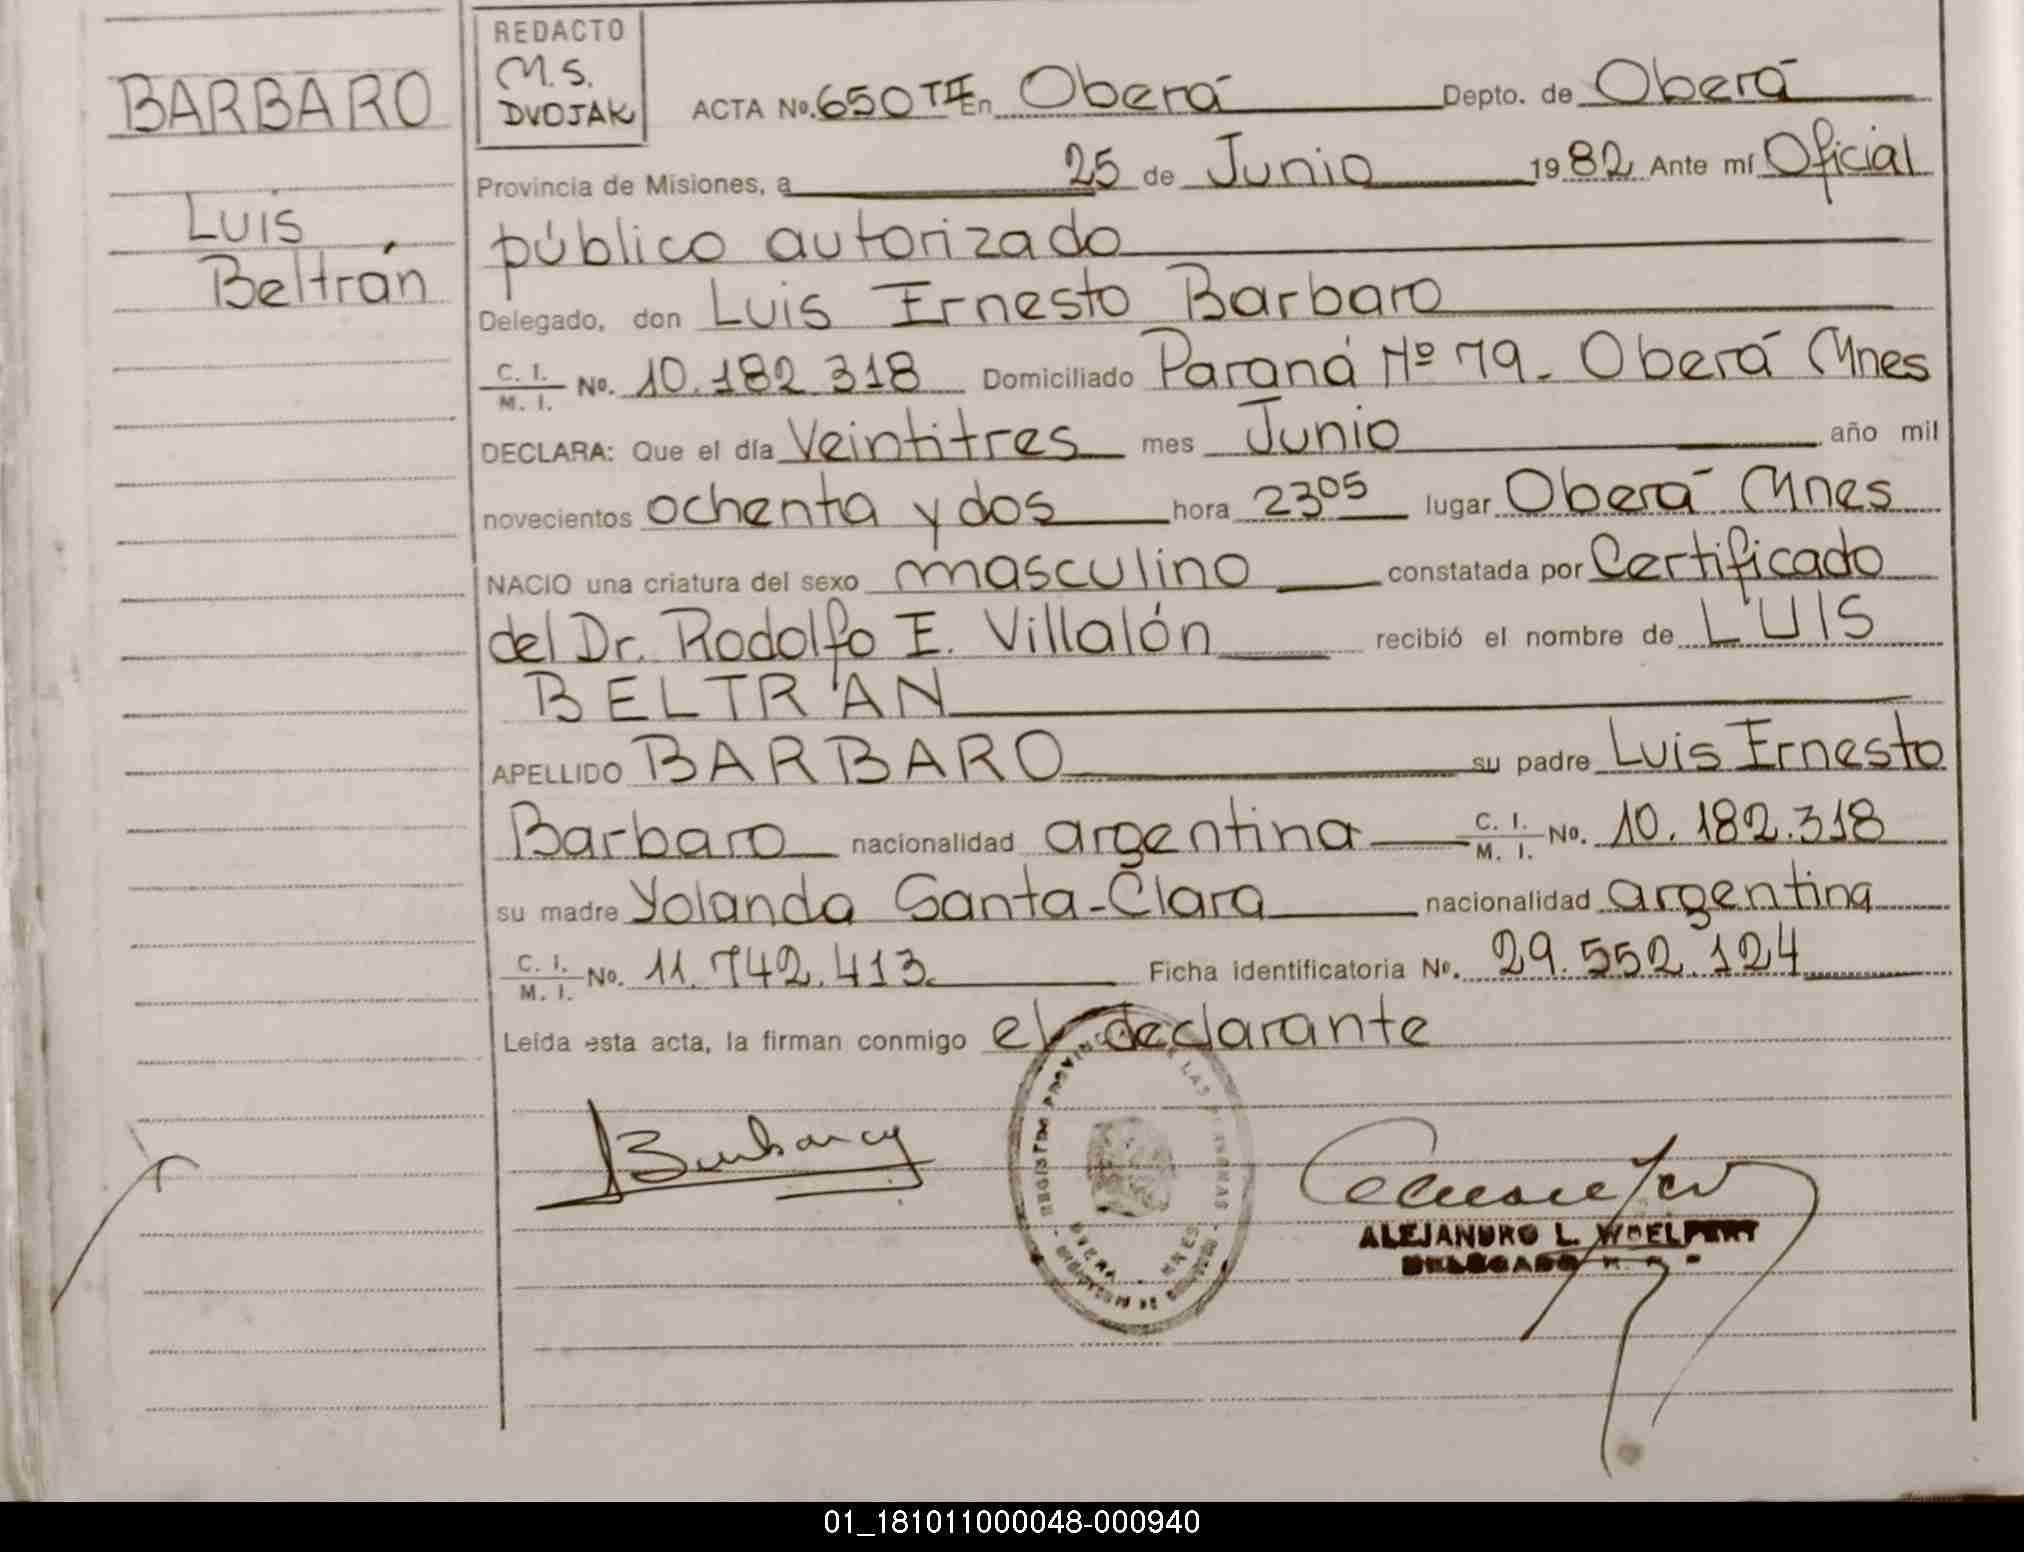 BARBARO
Luis
Beltrán
REDACTO
M.S.
DVOJAK
ACTA No. 650 TII En Oberá Depto. de Oberá
Provincia de Misiones, a 25 de Junio 1982 Ante mí Oficial
público autorizado
Delegado, don Luis Ernesto Barbaro
C. I. M. I. No. 10.182.318 Domiciliado Paraná Nº 79 - Oberá Mnes
DECLARA: Que el día Veintitres mes Junio año mil
novecientos ochenta y dos hora 23 05 lugar Oberá Mnes
NACIO una criatura del sexo masculino constatada por Certificado
del Dr. Rodolfo E. Villalón recibió el nombre de LUIS
BELTRÁN
APELLIDO BARBARO su padre Luis Ernesto
Barbaro nacionalidad argentina C. I. M. I. No. 10.182.318
su madre Yolanda Santa-Clara nacionalidad argentina
C. I. M. I. No. 11.742.413 Ficha identificatoria Nº. 29.552.124
Leída esta acta, la firman conmigo el declarante
REGISTRO PROVINCIAL DE LAS PERSONAS
OBERA - MNES
ALEJANDRO L. WOELFERT
DELEGADO
01_181011000048-000940